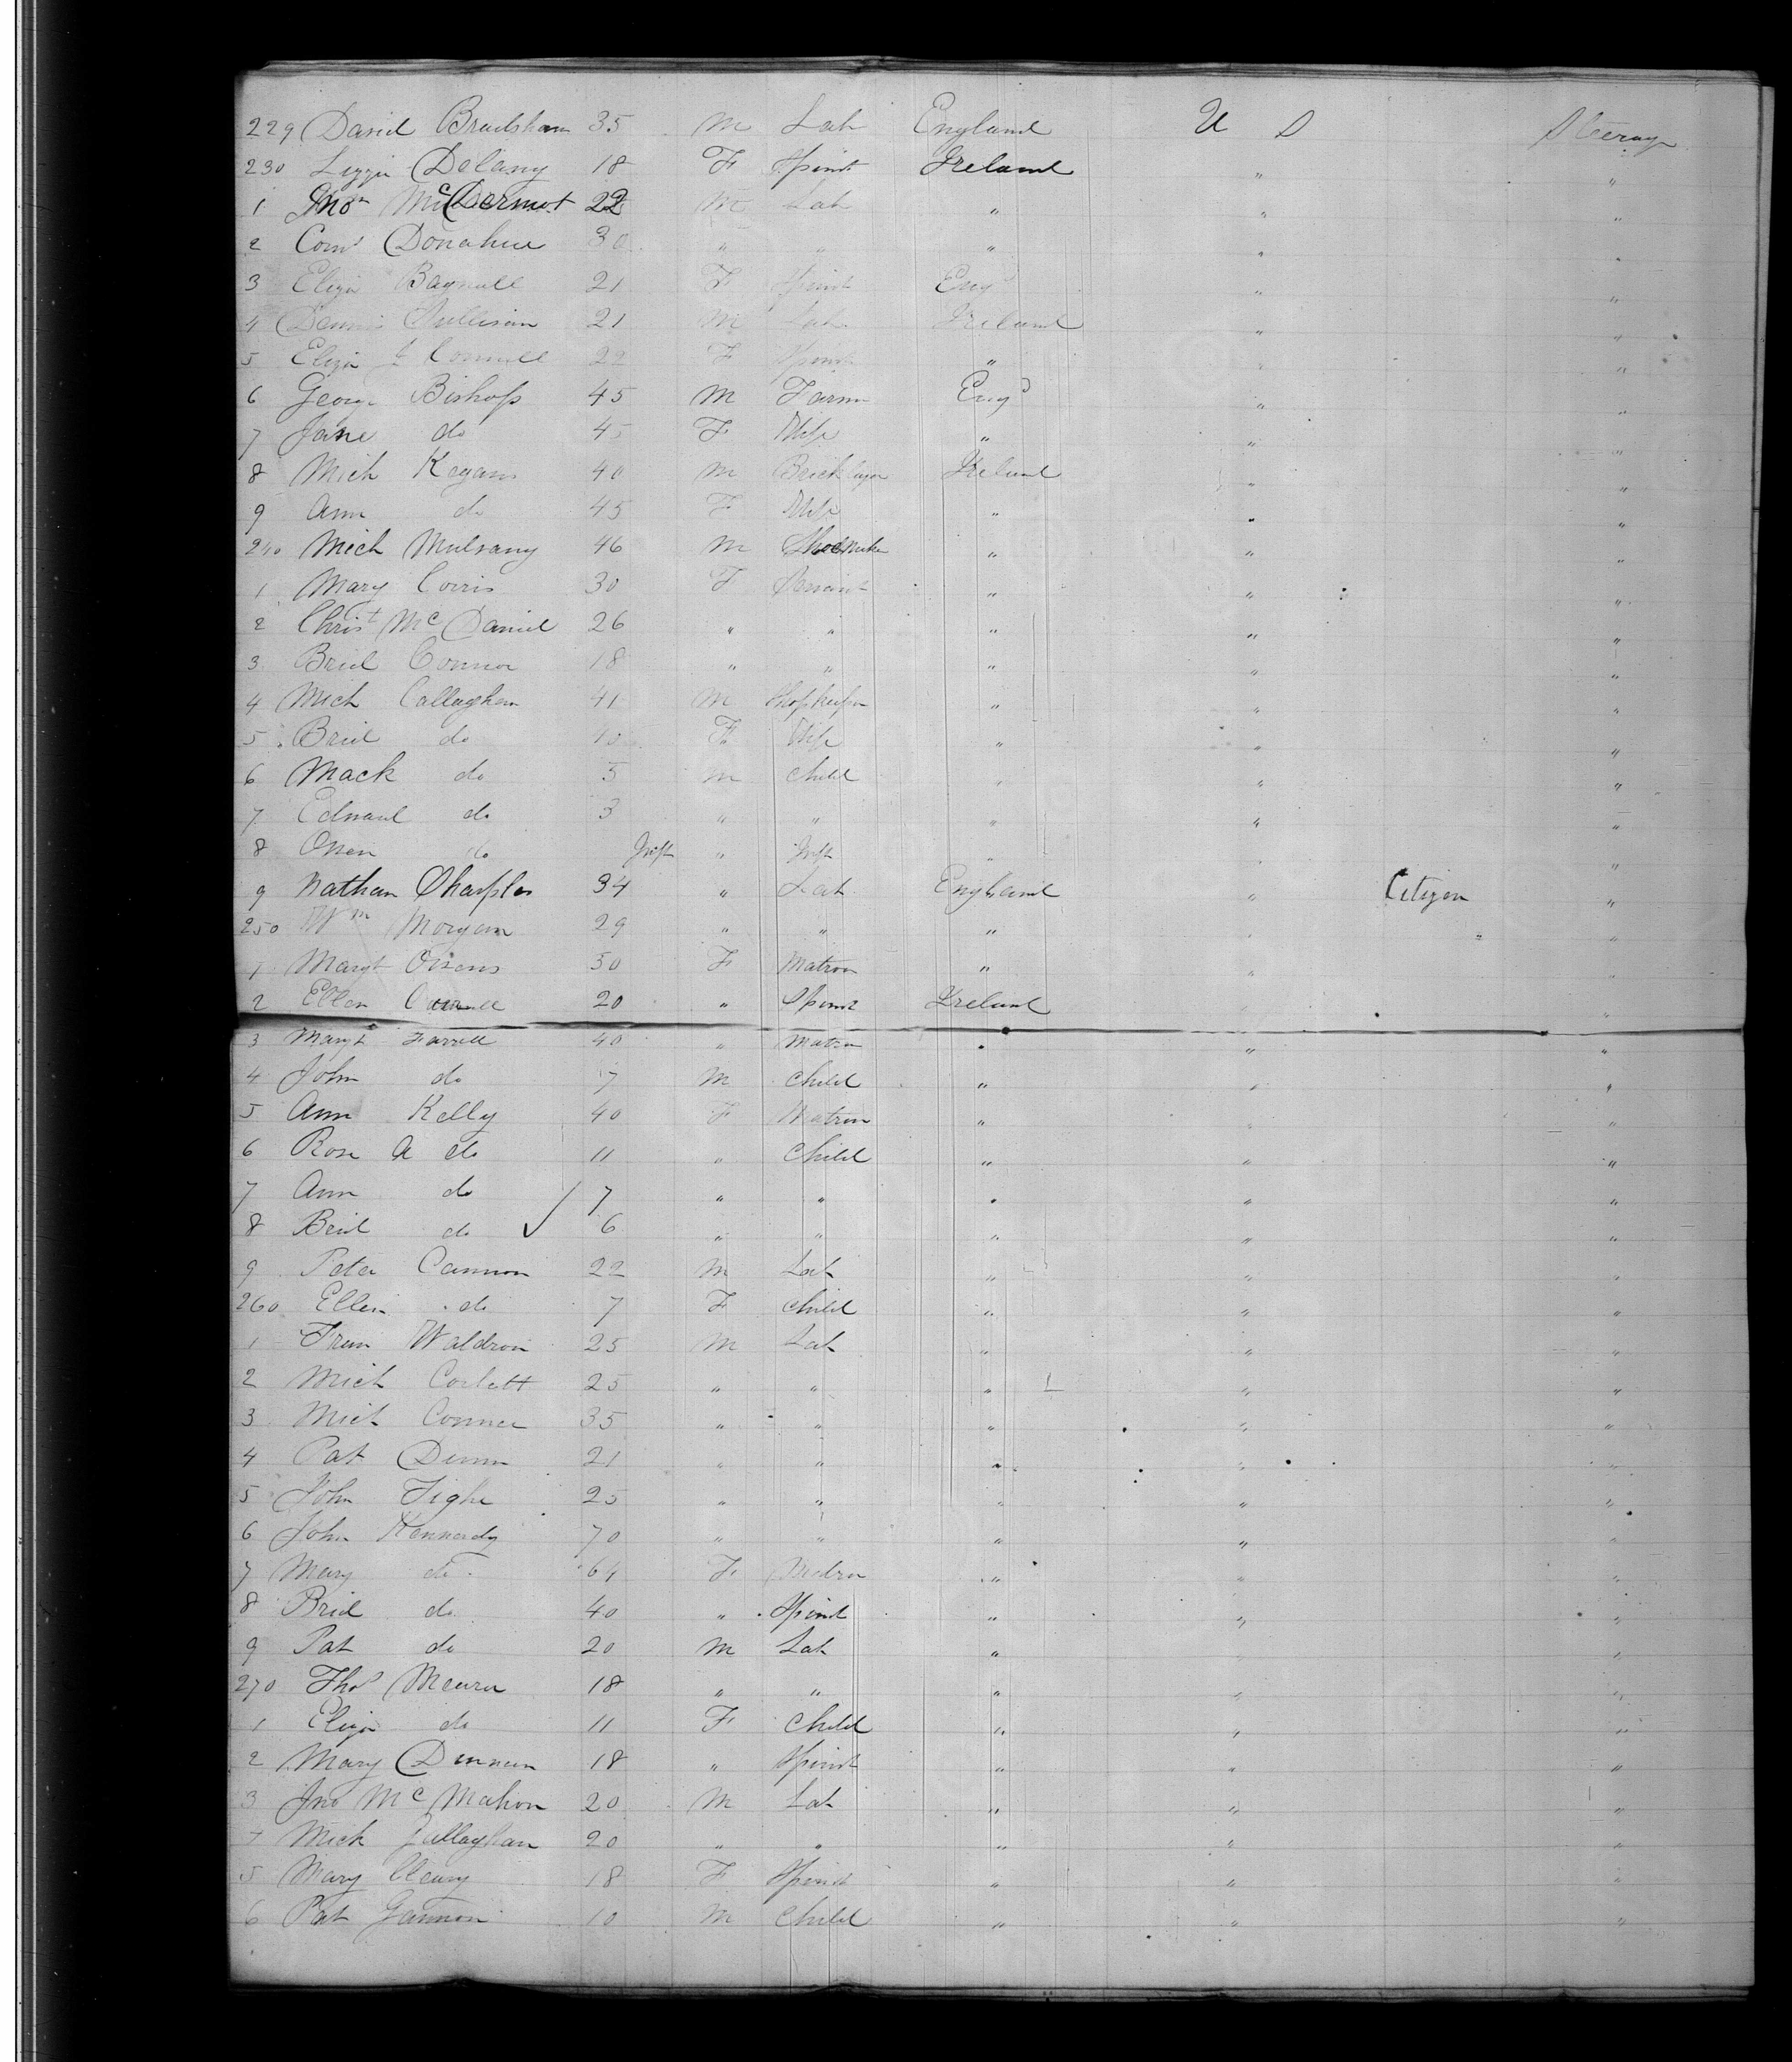 229 David Bradshaw 35 M Lab England U S Steerage
230 Lizzie Delany 18 F Spinst Ireland " "
1 Thos McDermot 22 M Lab " " "
2 Corns Donahue 30 " " " " "
3 Eliza Bagnall 21 F Spinst Engd " "
4 Dennis Sullivan 21 M Lab Ireland " "
5 Eliza Connell 22 F Spinst " " "
6 George Bishop 45 M Farmr Engd " "
7 Jane do 45 F Wife " " "
8 Mich Kegans 40 M Bricklayer Ireland " "
9 Ann do 45 F Wife " " "
240 Mich Mulvany 46 M Shoemaker " " "
1 Mary Corris 30 F Servant " " "
2 Christ McDaniel 26 " " " " "
3 Brid Connor 18 " " " " "
4 Mich Callaghan 41 M Shopkeeper " " "
5 Brid do F Wife " " "
6 Mack do 5 M Child " " "
7 Edward do 3 " " " " "
8 Owen do Inft " Inft " " "
9 Nathan Sharples 34 " Lab England " Citizen "
250 Wm Morgan 29 " " " " " "
1 Margt Owens 50 F Matron " " "
2 Ellen 20 " Spinst Ireland " "
3 Margt Farrell 40 " Matrn " " "
4 John do 7 M Child " " "
5 Ann Kelly 40 F Matron " " "
6 Rose A do 11 " Child " " "
7 Ann do 7 " " " " "
8 Brid do 6 " " " " "
9 Peter Cannon 22 M Lab " " "
260 Ellen do 7 F Child " " "
1 Fran Waldron 25 M Lab " " "
2 Mich Corbett 25 " " " " "
3 Mich Connor 35 " " " " "
4 Pat Dunn 21 " " " " "
5 John Tighe 25 " " " " "
6 John Kennedy 70 " " " " "
7 Mary do 64 F Matrn " " "
8 Brid do 40 " Spinst " " "
9 Pat do 20 M Lab " " "
270 Thos Meara 18 " " " " "
1 Eliza do 11 F Child " " "
2 Mary 18 " Spinst " " "
3 Jno McMahon 20 M Lab " " "
4 Mick Gallaghan 20 " " " " "
5 Mary Cleary 18 F Spinst " " "
6 Pat Gannon 10 M Child " " "